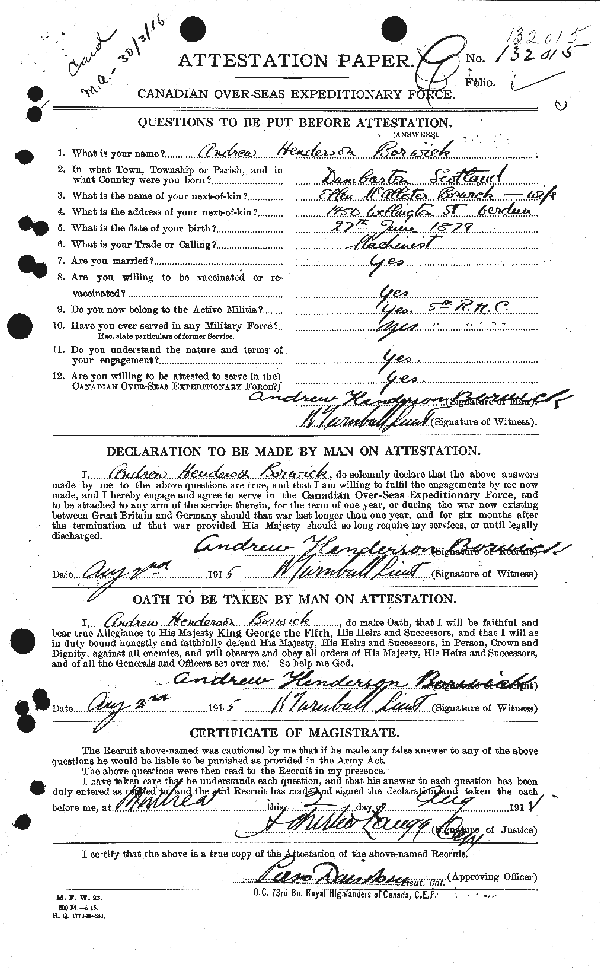 132015
Card
M.A. - 30/3/16
ATTESTATION PAPER.
No. 132015
Folio.
CANADIAN OVER-SEAS EXPEDITIONARY FORCE.
QUESTIONS TO BE PUT BEFORE ATTESTATION.
(ANSWERS).
1. What is your name? Andrew Henderson Borwick
2. In what Town, Township or Parish, and in
what Country were you born? Dumbarton Scotland
3. What is the name of your next-of-kin? Borwick - wife
4. What is the address of your next-of-kin? 1450 Wellington St Verdun
5. What is the date of your birth? 27th June 1879
6. What is your Trade or Calling? Machinist
7. Are you married? Yes
8. Are you willing to be vaccinated or re-
vaccinated? Yes
9. Do you now belong to the Active Militia? Yes. 5th R.H.C
10. Have you ever served in any Military Force? Yes " " " "
If so, state particulars of former Service.
11. Do you understand the nature and terms of
your engagement? Yes.
12. Are you willing to be attested to serve in the
CANADIAN OVER-SEAS EXPEDITIONARY FORCE? Yes.
Andrew Henderson Borwick (Signature of Man).
H Turnbull Lieut (Signature of Witness).
DECLARATION TO BE MADE BY MAN ON ATTESTATION.
I, Andrew Henderson Borwick, do solemnly declare that the above answers
made by me to the above questions are true, and that I am willing to fulfil the engagements by me now
made, and I hereby engage and agree to serve in the Canadian Over-Seas Expeditionary Force, and
to be attached to any arm of the service therein, for the term of one year, or during the war now existing
between Great Britain and Germany should that war last longer than one year, and for six months after
the termination of that war provided His Majesty should so long require my services, or until legally
discharged.
Andrew Henderson Borwick (Signature of Recruit)
Date Aug 2nd 1915 H Turnbull Lieut (Signature of Witness)
OATH TO BE TAKEN BY MAN ON ATTESTATION.
I, Andrew Henderson Borwick, do make Oath, that I will be faithful and
bear true Allegiance to His Majesty King George the Fifth, His Heirs and Successors, and that I will as
in duty bound honestly and faithfully defend His Majesty, His Heirs and Successors, in Person, Crown and
Dignity, against all enemies, and will observe and obey all orders of His Majesty, His Heirs and Successors,
and of all the Generals and Officers set over me. So help me God.
Andrew Henderson Borwick
Date Aug 2nd 1915 H Turnbull Lieut (Signature of Witness)
CERTIFICATE OF MAGISTRATE.
The Recruit above-named was cautioned by me that if he made any false answer to any of the above
questions he would be liable to be punished as provided in the Army Act.
The above questions were then read to the Recruit in my presence.
I have taken care that he understands each question, and that his answer to each question has been
duly entered as replied to, and the said Recruit has made and signed the declaration and taken the oath
before me, at Montreal this 2 day of Aug 191
(Signature of Justice)
I certify that the above is a true copy of the Attestation of the above-named Recruit.
Lieut. Col. (Approving Officer)
O.C. 73rd Bn. Royal Highlanders of Canada, C.E.F.
M. F. W. 23.